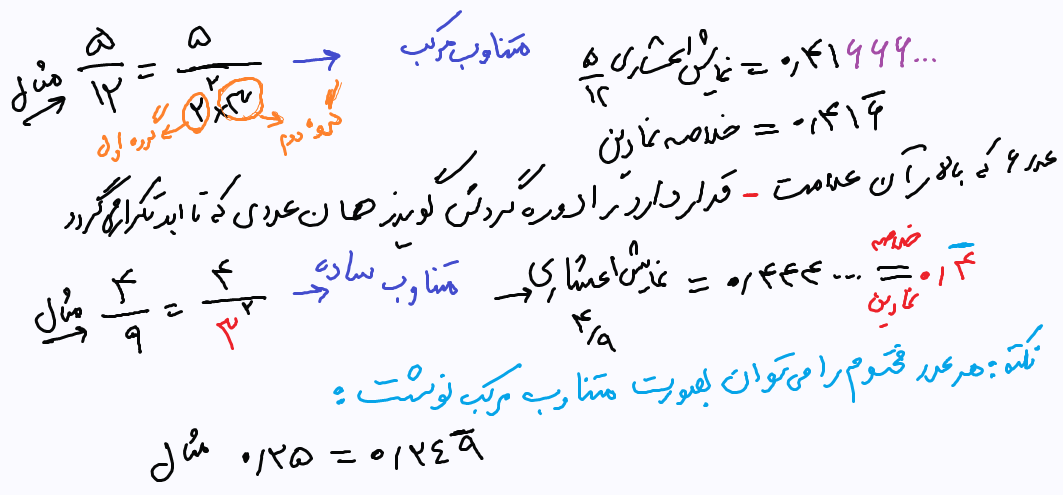 مثال ۵/۱۲ = ۵/(۲^۲×۳) → متناوب مرکب
گروه اول
گروه دوم
نمایش اعشاری ۵/۱۲ = ۰٫۴۱۶۶۶...
خلاصه نمادین = ۰٫۴۱۶̅
عدد ۶ که بالار آن علامت - قرار دارد را دوره گردش گویند همان عددی که تا ابد تکرار می گردد
مثال ۴/۹ = ۴/۳^۲ → متناوب ساده → نمایش اعشاری ۴/۹ = ۰٫۴۴۴... = ۰٫۴̅
خلاصه نمادین
نکته: هر عدد مختوم را می توان بصورت متناوب مرکب نوشت:
مثال ۰٫۲۵ = ۰٫۲۴۹̅